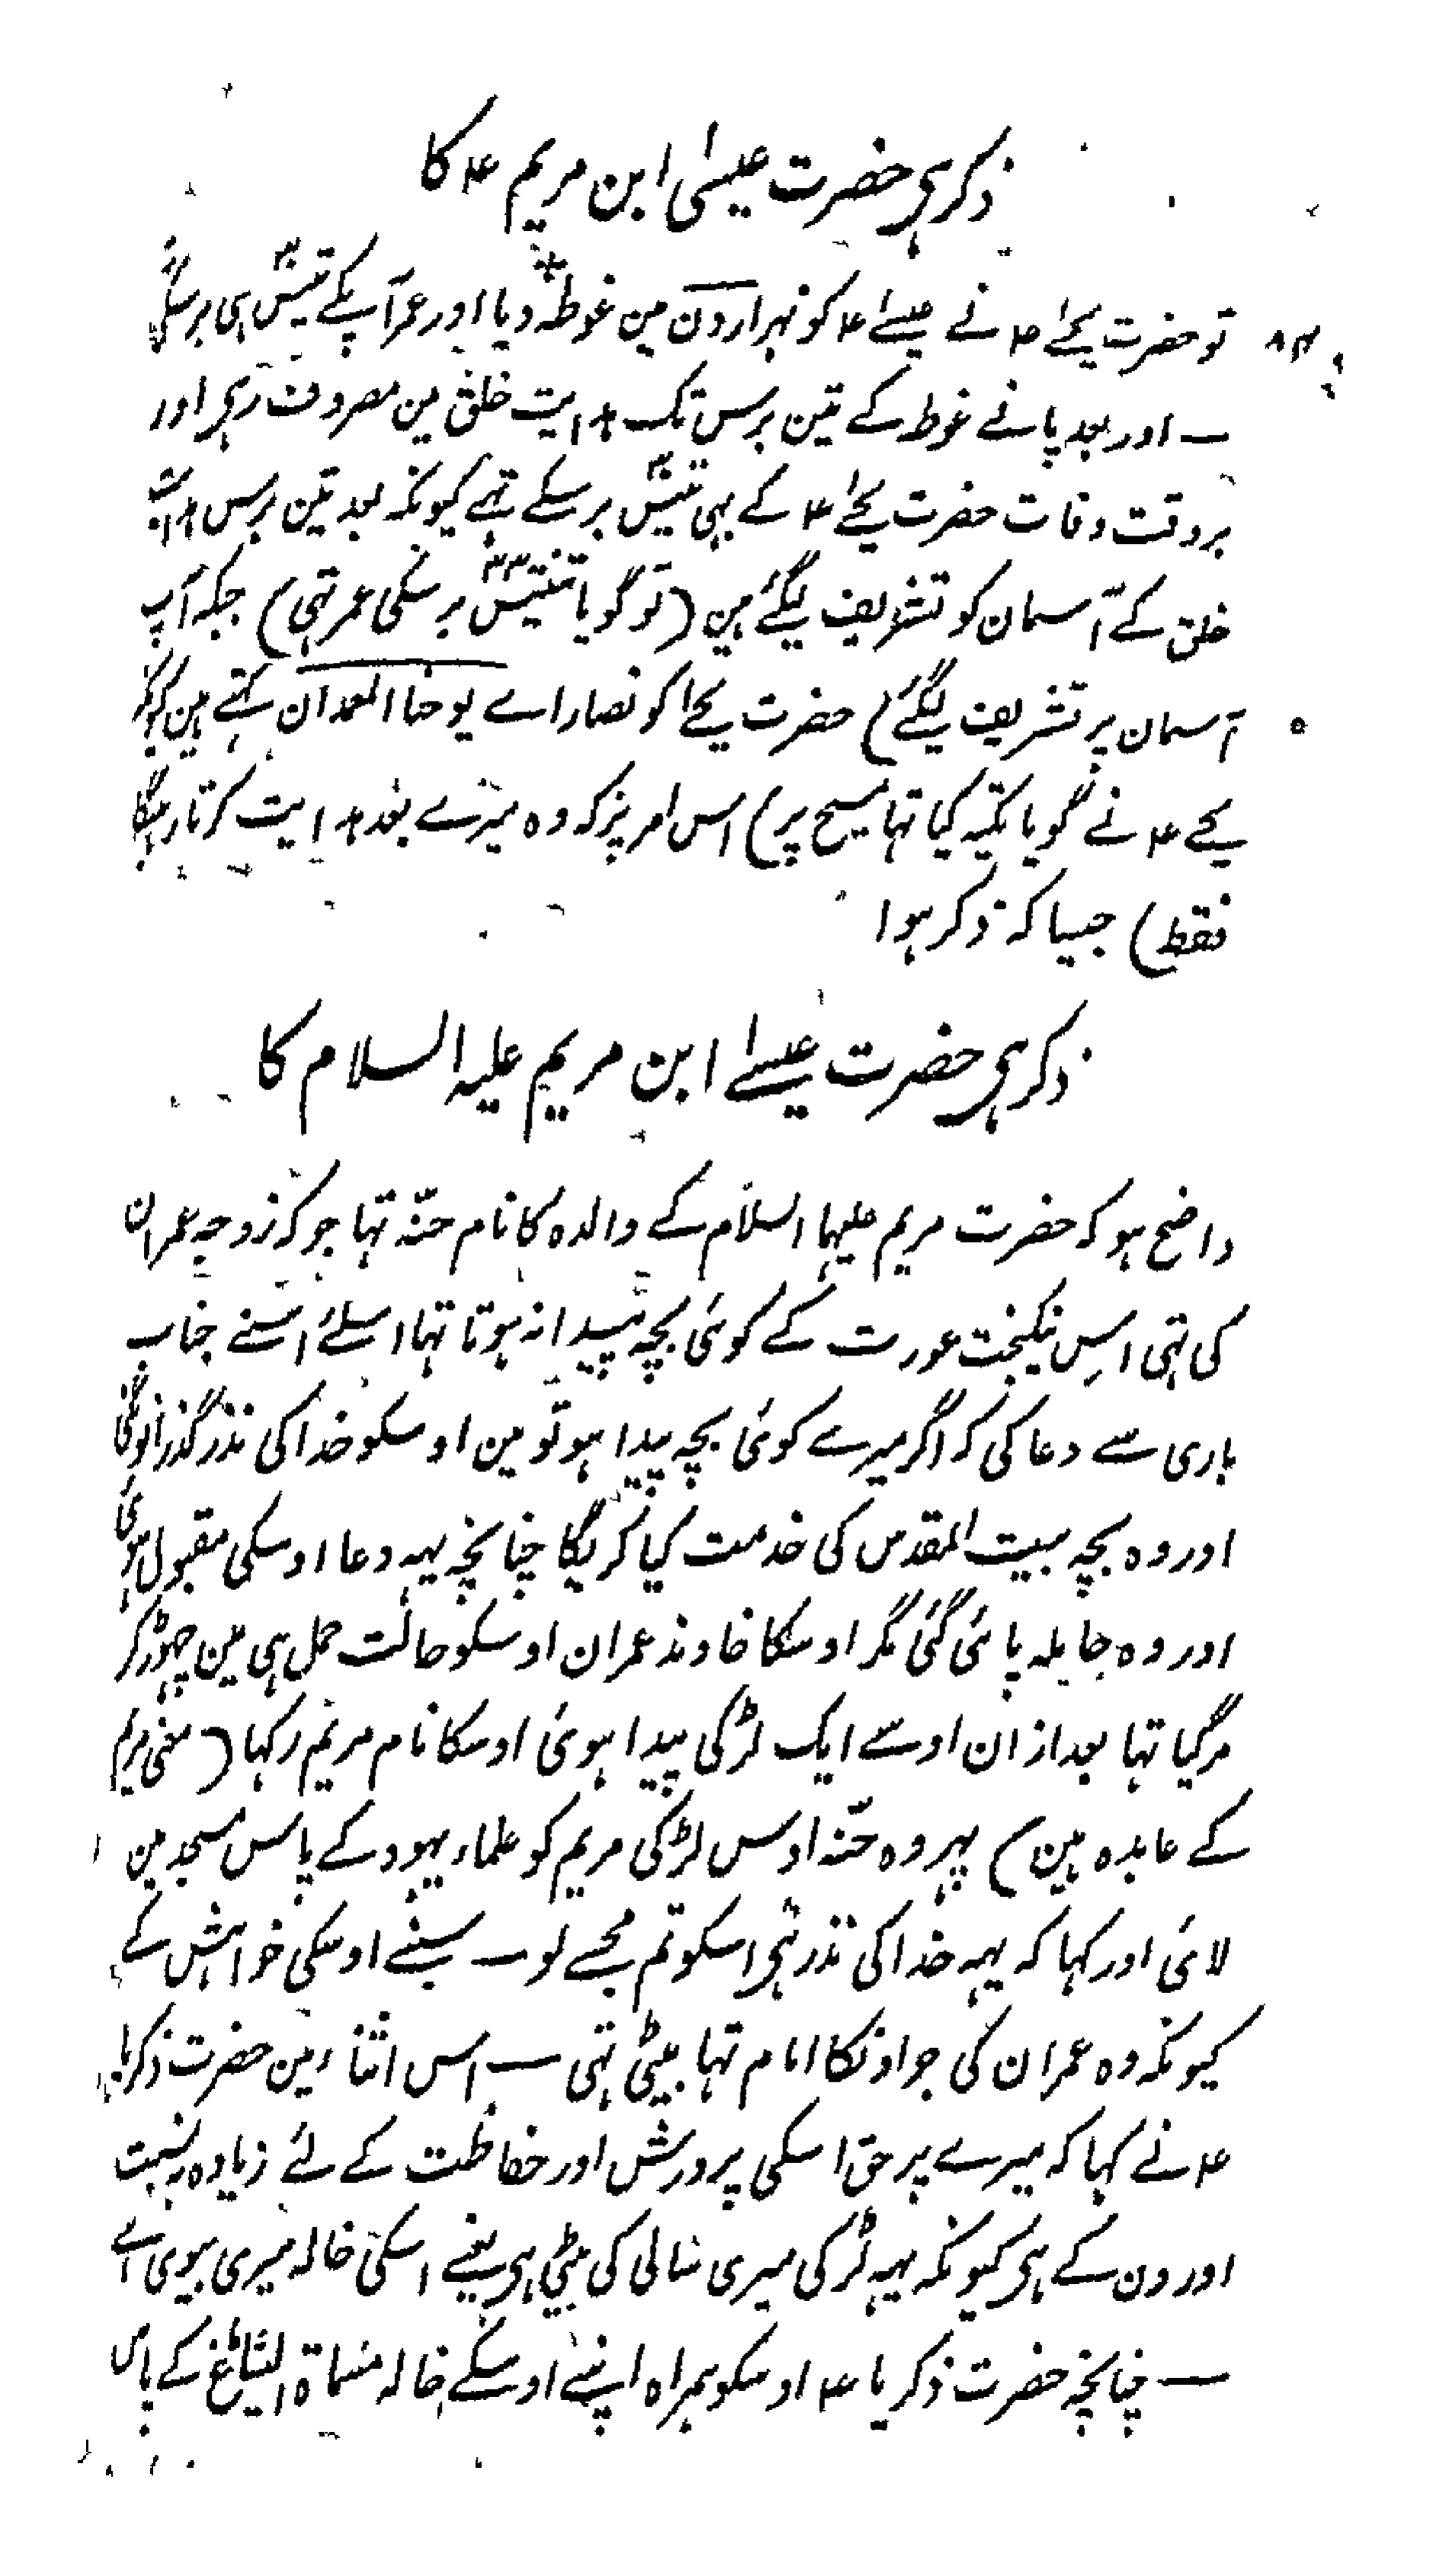 ذکر ہی حضرت عیسیٰ ابن مریم ۴ کا
تو حضرت یحے ۴ نے عیسے ۴ کو نہر اردون مین غوطہ دیا اور عمر آپکے تیس ۳۰ ہی برسکی
— اور بعد پانے غوطہ کے تین برس تک ہدایت خلق مین مصروف رہی اور
بروقت وفات حضرت یحے ۴ کے بہی تیس ۳۰ برسکے تہے کیونکہ بعد تین برس ہدایت
خلق کے آسمان کو تشریف لیگئے ہین (تو گویا تینتیس ۳۳ برسکی عمر تہی) جبکہ آپ
آسمان پر تشریف لیگئے) حضرت یحےٰ کو نصارا ے یوحنا المعمدان کہتے ہین کیونکہ
یحے ۴ نے گویا تکیہ کیا تہا مسیح پر) اس امر پر کہ وہ میرے بعد ہدایت کرتا رہیگا
فقط) جیسا کہ ذکر ہوا
ذکر ہی حضرت عیسےٰ ابن مریم علیہ السلام کا
واضح ہو کہ حضرت مریم علیہا السلام کے والدہ کا نام حنّہ تہا جو کہ زوجہ عمران
کی تہی اس نیکبخت عورت کے کوئی بچہ پیدا نہ ہوتا تہا اسلئے اسنے جناب
باری سے دعا کی کہ اگر میرے کوئی بچہ پیدا ہو تو مین اوسکو خدا کی نذر گذرانونگا
اور وہ بچہ بیت المقدس کی خدمت کیا کریگا چنانچہ یہہ دعا اوسکی مقبول ہوئی
اور وہ حاملہ پائی گئی مگر اوسکا خاوند عمران اوسکو حالت حمل ہی مین چہوڑ کر
مر گیا تہا بعد ازان اوسے ایک لڑکی پیدا ہوئی اوسکا نام مریم رکہا (معنی مریم
کے عابدہ ہین) پہر وہ حنّہ اوس لڑکی مریم کو علماء یہود کے پاس مسجد مین
لائی اور کہا کہ یہہ خدا کی نذر ہی اسکو تم مجہے لو — سبنے اوسکی خواہش کے
کیونکہ وہ عمران کی جو اونکا امام تہا بیٹی تہی — اس اثناء مین حضرت ذکریا
۴ نے کہا کہ میرے پر حق اسکی پرورش اور حفاظت کے لئے زیادہ بہ نسبت
اورون کے ہی کیونکہ یہہ لڑکی میری سالی کی بیٹی ہی یعنے اسکی خالہ میری بیوی ہے
— چنانچہ حضرت ذکریا ۴ اوسکو ہمراہ اپنے اوسکے خالہ مسماة الیشاع کے پاس